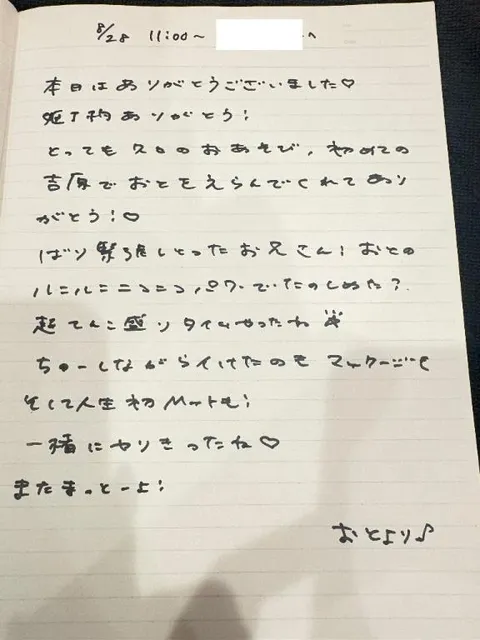 8/28 11:00〜 へ
本日はありがとうございました♡
姫予約ありがとう!
とっても久々のおあそび、初めての
吉原でおとをえらんでくれてあり
がとう!♡
ばり緊張しとったお兄さん!おとの
ルンルンニコニコパワーでたのしめた?
超てんこ盛りタイムやったね
ちゅーしながらイけたのも マッサージも
そして人生初Mットも!
一緒にヤりきったね♡
またまっとーよ!
おとより♪